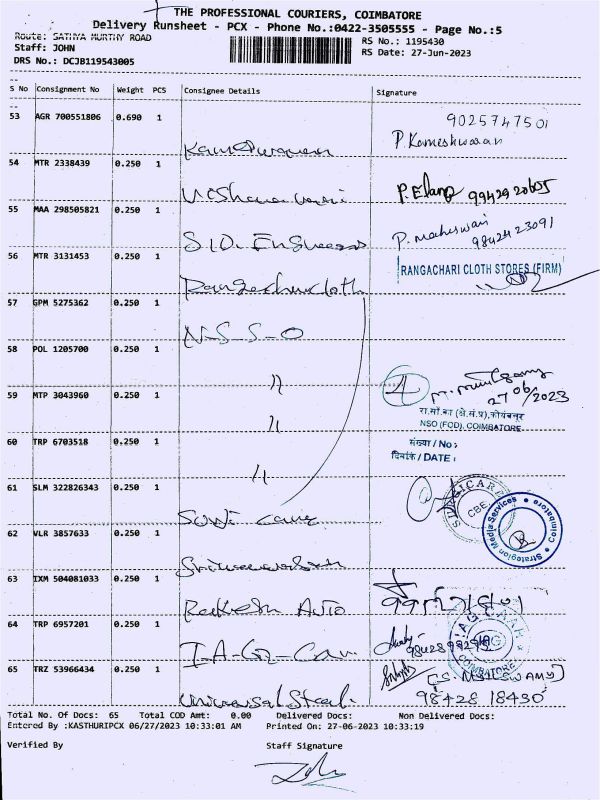 THE PROFESSIONAL COURIERS, COIMBATORE
Delivery Runsheet - PCX - Phone No.:0422-3505555 - Page No.:5
Route: SATHYA MURTHY ROAD
RS No.: 1195430
Staff: JOHN
RS Date: 27-Jun-2023
DRS No.: DCJB119543005
S No Consignment No Weight PCS Consignee Details Signature
53 AGR 700551806 0.690 1
9025747501
P. Kameshwaran
54 MTR 2338439 0.250 1
P. Elango 9942920605
55 MAA 298505821 0.250 1
S.I.D. Engineers
P. maheswari
9842423091
56 MTR 3131453 0.250 1
RANGACHARI CLOTH STORES (FIRM)
57 GPM 5275362 0.250 1
N-S-S-O
58 POL 1205700 0.250 1
〃
59 MTP 3043960 0.250 1
27/06/2023
〃
रा.सां.का (क्षे.सं.प्र), कोयंबत्तूर
NSO (FOD), COIMBATORE
60 TRP 6703518 0.250 1
संख्या / No :
दिनांक / DATE :
〃
61 SLM 322826343 0.250 1
SURGICARE
CBE
Strategion Media Services
Coimbatore
62 VLR 3857633 0.250 1
63 IXM 504081033 0.250 1
Rakesh Auto
64 TRP 6957201 0.250 1
I-A-G-Car
IAG
COIMBATORE
65 TRZ 53966434 0.250 1
Universal Steel
98428 18430
Total No. Of Docs: 65 Total COD Amt: 0.00 Delivered Docs: Non Delivered Docs:
Entered By :KASTHURIPCX 06/27/2023 10:33:01 AM Printed On: 27-06-2023 10:33:19
Verified By Staff Signature